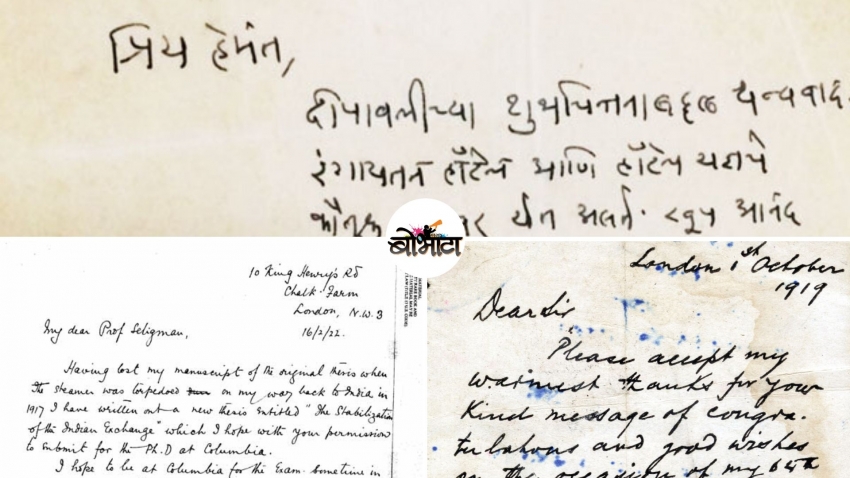 प्रिय हेमंत,
दीपावलीच्या शुभचिंतनाबद्दल धन्यवाद.
रंगायतन हॉटेल आणि हॉटेल
येत असते. खूप आनंद
बोभाटा
10 King Henry's Rd
Chalk Farm
London, N.W. 3
16/2/22.
My dear Prof Seligman,
Having lost my manuscript of the original thesis when
the steamer was torpedoed on my way back to India in
1917 I have written out a new thesis entitled "The Stabilization
of the Indian Exchange" which I hope with your permission
to submit for the Ph.D at Columbia.
I hope to be at Columbia for the Exam. Sometime in
London 1st October
1919
Dear Sir
Please accept my
warmest thanks for your
kind message of congra-
tulations and good wishes
on the occasion of my